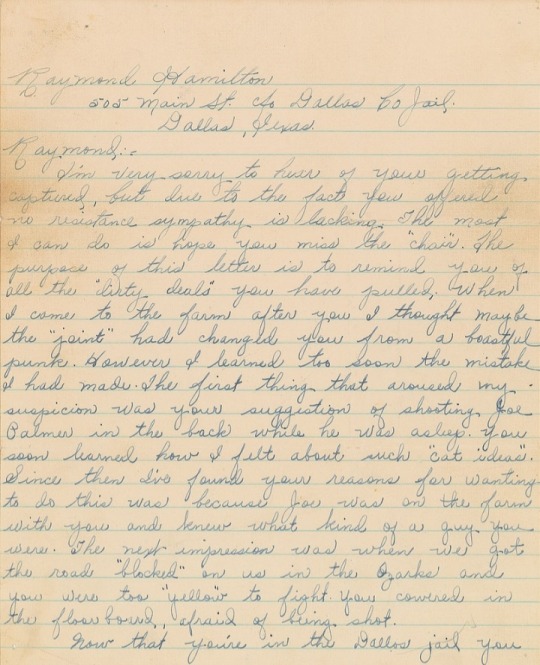 Raymond Hamilton
505 Main St. c/o Dallas Co Jail.
Dallas, Texas.
Raymond:-
I'm very sorry to hear of your getting
captured, but due to the fact you offered
no resistance sympathy is lacking. The most
I can do is hope you miss the "chair". The
purpose of this letter is to remind you of
all the "dirty deals" you have pulled. When
I come to the farm after you I thought maybe
the "joint" had changed you from a boastful
punk. However I learned too soon the mistake
I had made. The first thing that aroused my
suspicion was your suggestion of shooting Joe
Palmer in the back while he was asleep. You
soon learned how I felt about such "cat ideas".
Since then I've found your reasons for wanting
to do this was because Joe was on the farm
with you and knew what kind of a guy you
were. The next impression was when we got
the road "blocked" on us in the Ozarks and
you were too "yellow" to fight. You cowered in
the floorboard, afraid of being shot.
Now that you're in the Dallas jail you